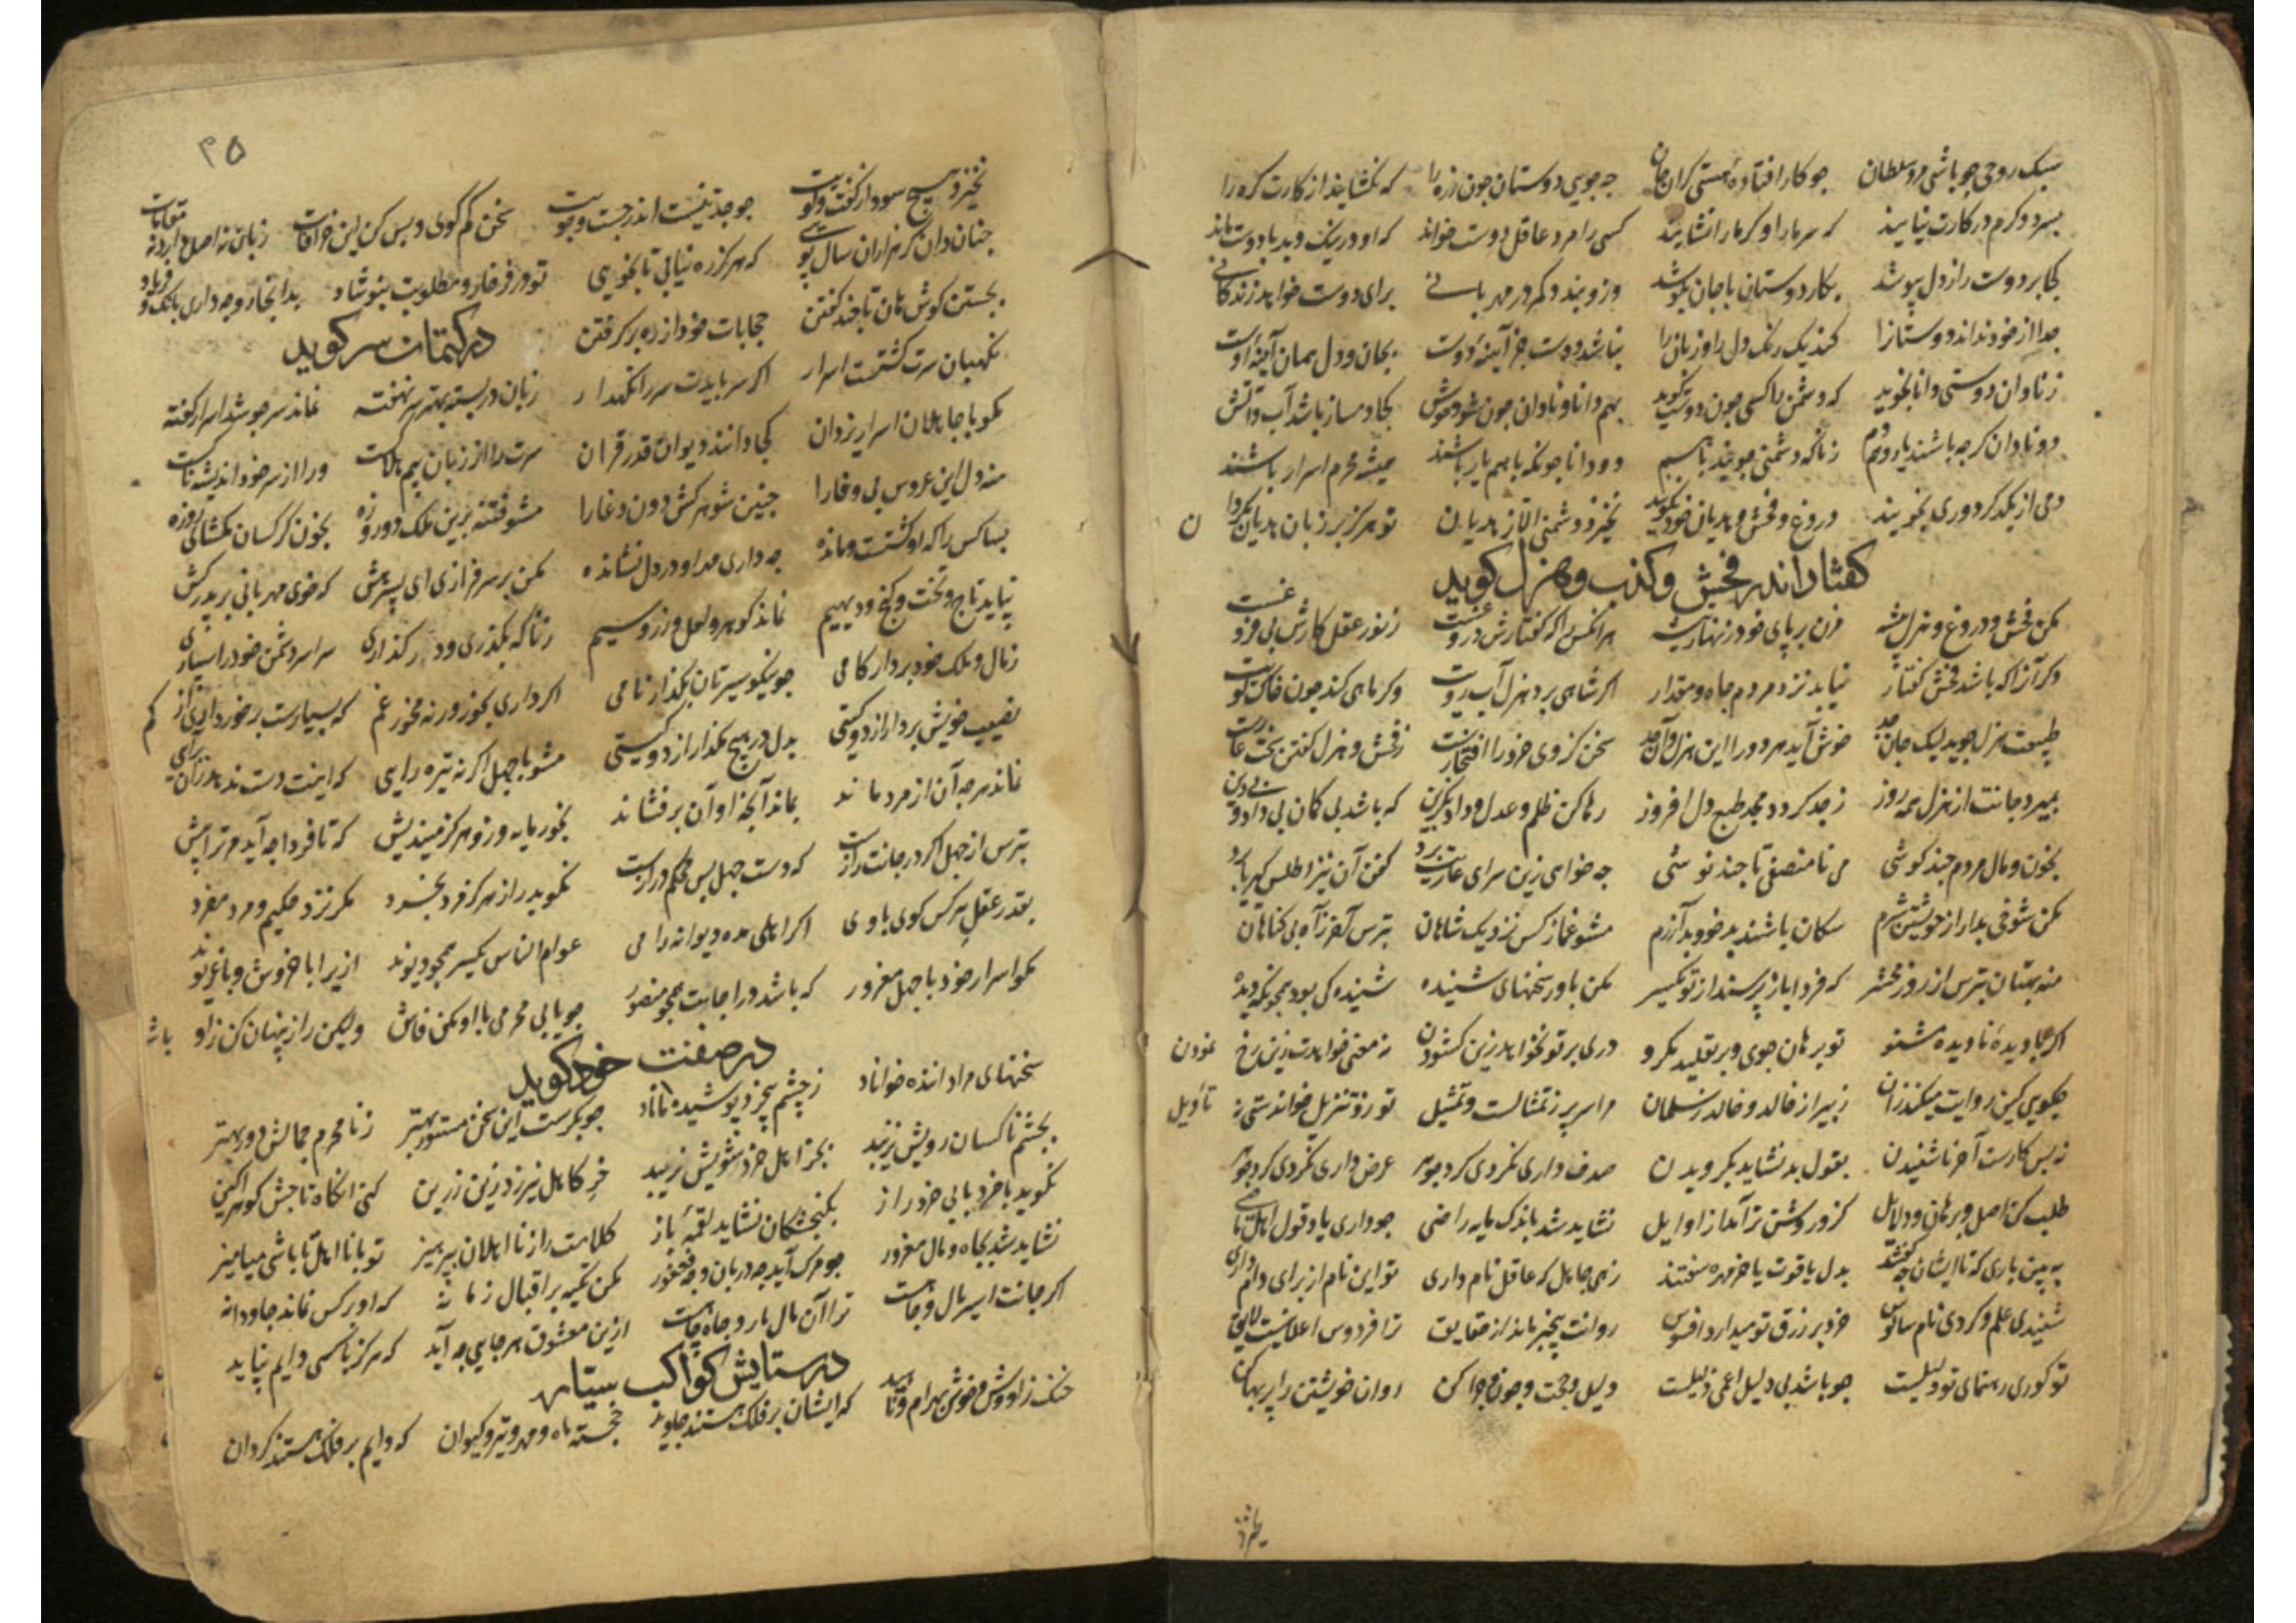 سبک روحی چو باشی مرد سلطان چو کار افتاده هستی کران جان چه جویی دوستان چون زره را که نکشایند از کارت کره را
کسی را مرد عاقل دوست خواند که او در نیک و بد با دوست ماند
کجا بر دوست راز دل بپوشد بکار دوستان با جان بکوشد برای دوست خواهد زندکانی
جدا از خود نداند دوستانرا کند یک رنک دل را و زبان را نباشد دوست جز آیینهٔ دوست بجان و دل همان آیینهٔ اوست
ز نادان دوستی دانا نجوید که دشمن را کسی چون دوست نکوید بهم دانا و نادان چون شود خوش کجا دمساز باشد آب و آتش
دو نادان کرچه باشند یار و هم دو دانا چونکه با هم یار باشند همیشه محرم اسرار باشند
دمی از یکدکر دوری نجویند دروغ و فحش و هذیان خود نکویند نخیزد دشمنی الا ز هذیان تو هرکز بر زبان هذیان مکردان
کفتار اندر فحش و کذب و هزل کوید
مکن فحش و دروغ و هزل پیشه مزن بر پای خود زنهار تیشه هر انکس را که کفتارش دروغست ز نور عقل کارش بی فروغست
دکر آنرا که باشد فحش کفتار نیاید نزد مردم جاه و مقدار اکر شاهی برد هزل آب رویت وکر ماهی کند چون خاک کویت
طبیعت هزل جوید لیک جان جد خوش آید هر دو را این هزل و آن جد سخن کز وی خرد را افتخارست ز فحش و هزل کفتن سخت عارست
بمیرد جانت از هزل همه روز ز جد کردد مجد طبع دل افروز رها کن ظلم و عدل و داد بکزین که باشد بی کمان بی داد بی دین
بخون و مال مردم چند کوشی می نا منصفی تا چند نوشی چه خواهی زین سرای عاریت برد کفن آن نیز اطلس کیر یا برد
مکن شوخی بدار از خویشتن شرم سکان باشند بدخو و بد آزرم مشو غماز کس نزدیک شاهان بترس آخر ز آه بی کناهان
منه بهتان بترس از روز محشر که فردا باز پرسند از تو یکسر مکن باور سخنهای شنیده شنیده کی بود همچون که دیده
تو برهان جوی و بر تقلید مکرو دری بر تو نخواهد زین کشودن نه معنی خواهدت زین رخ نمودن
چکویی کین روایت میکنند زان زبیر از خالد و خالد ز سلمان مر اسیر ز تمثالست و تمثیل تو رو تنزیل خواندستی نه تاویل
نه بس کارست آخر ناشنیدن بقول بد نشاید بکرویدن صدف داری نکردی کرد جوهر عرض داری نکردی کرد جوهر
طلب کن اصل و برهان و دلایل کزو روشن تر آمد از اوایل نشاید شد باندک مایه راضی چو داری یاد قول اهل ماضی
ببین باری که تا ایشان چه کفتند بدل یاقوت یا خر مهره سفتند زهی جاهل که عاقل نام داری تو این نام از برای دام داری
شنیدی علم و کردی نام سالوس خرد بر زرق تو میدارد افسوس روانت بیخبر ماند از حقایق ترا فردوس اعلا نیست لایق
تو کوری رهنمای تو دلیلست چو باشد بی دلیل اعمی ذلیلست دلیل و حجت و چون و چرا کن روان خویشتن را پر بها کن
۳۵
نخیزد هیچ سود از کفت و کویت چو جدی نیست اندر جست و جویت سخن کم کوی و بس کن این خرافات زبان نه اصل دارد نه مقامات
چنان دان کر هزاران سال پویی که هرکز ره نیابی تا نجویی
بجستن کوش هان تا چند کفتن حجابات خود از ره بر کرفتن
در کتمان سر کوید
نکهبان سرت کشتست اسرار اکر سر بایدت سر را نکهدار زبان در بسته بهتر سر نهفته نماند سر چو شد اسرار کفته
مکو با جاهلان اسرار یزدان کجا دانند دیوان قدر قران سرت را از زبان بیم هلاکست ورا از سر خود اندیشه ناکست
منه دل این عروس بی وفا را چنین شوهر کش دون دغا را مشو فتنه برین ملک دو روزه بخون کرکسان مکشای روزه
بسا کس را که او کشتست و مانده چه داری مهر او در دل نشانده مکن بر سرفرازی ای پسر خوش که خوی مهربانی بر پدر کش
نپاید تاج و تخت و کنج و دیهیم نماند کوهر و لعل و زر و سیم زناکه بکذری و در کذاری سراسر دشمن خود را سپاری
ز مال و ملک خود بردار کامی چو نیکو سیرتان بکذار نامی اکر داری بخور ور نه مخور غم
نصیب خویش بردار از دو کیتی بدل در هیچ مکذار از دو کیتی مشو با جهل اکر نه تیره رایی
نماند هر چه آن از مرد ماند بماند آنچه او آن بر فشاند بخور مایه وزو هرکز میندیش که تا فردا چه آید مر ترا پیش
بترس از جهل اکر در جانت رازست که دست جهل بس محکم درازست نکوید راز هرکز مرد بخرد مکر نزد حکیم و مرد مفرد
بقدر عقل هر کس کوی با وی اکر اهلی مده دیوانه را می عوام الناس یکسر همچو دیوند ازیرا با خروش و با غریوند
مکو اسرار خود با جهل مغرور که باشد در اجابت همچو منصور چو یابی محرمی با او مکن فاش ولیکن راز پنهان کن ز اوباش
در صفت خود کوید
سخنهای مرا داننده خواناد ز چشم بیخرد پوشیده ماناد چو بکرست این سخن مستور بهتر ز نامحرم جمالش دور بهتر
بچشم ناکسان رویش نزیبد بجز اهل خرد شویش نزیبد خر کاهل نیرزد زین زرین
نکوید با خرد با بی خرد راز بکنجشکان نشاید لقمهٔ باز کلامت راز نااهلان بپرهیز تو با نااهل تا باشی میامیز
نشاید شد بجاه و مال مغرور چو مرک آید چه دربان و چه فغفور مکن تکیه بر اقبال زمانه که او بر کس نماند جاودانه
اکر جانت اسیر مال و جاهست ترا آن مال مار و جاه چاهست ازین معشوق هر جایی چه آید که هرکز با کسی دایم نپاید
در ستایش کواکب سیاره
خنک زاووش و خوش بهرام و ناهید که ایشان بر فلک هستند جاوید خجسته ماه و مهر و تیر و کیوان که دایم بر فلک هستند کردان